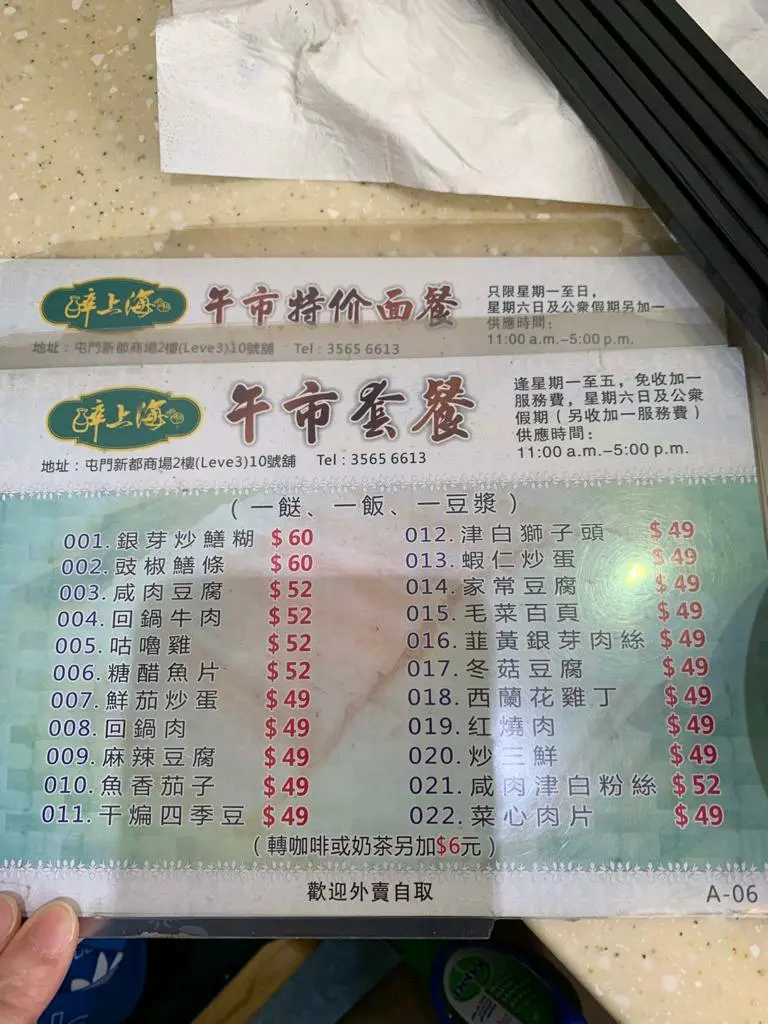 醉上海
午市特价面餐
只限星期一至日，
星期六日及公衆假期另加一
供應時間：
11:00 a.m.–5:00 p.m.
地址：屯門新都商場2樓(Leve3)10號舖 Tel : 3565 6613
醉上海
午市套餐
逢星期一至五，免收加一
服務費，星期六日及公衆
假期（另收加一服務費）
供應時間：
11:00 a.m.–5:00 p.m.
地址：屯門新都商場2樓(Leve3)10號舖 Tel : 3565 6613
（一餸、一飯、一豆漿）
001. 銀芽炒鱔糊 $60
002. 豉椒鱔條 $60
003. 咸肉豆腐 $52
004. 回鍋牛肉 $52
005. 咕嚕雞 $52
006. 糖醋魚片 $52
007. 鮮茄炒蛋 $49
008. 回鍋肉 $49
009. 麻辣豆腐 $49
010. 魚香茄子 $49
011. 干煸四季豆 $49
012. 津白獅子頭 $49
013. 蝦仁炒蛋 $49
014. 家常豆腐 $49
015. 毛菜百頁 $49
016. 韮黃銀芽肉絲 $49
017. 冬菇豆腐 $49
018. 西蘭花雞丁 $49
019. 红燒肉 $49
020. 炒三鮮 $49
021. 咸肉津白粉絲 $52
022. 菜心肉片 $49
（轉咖啡或奶茶另加$6元）
歡迎外賣自取
A-06
Dettol